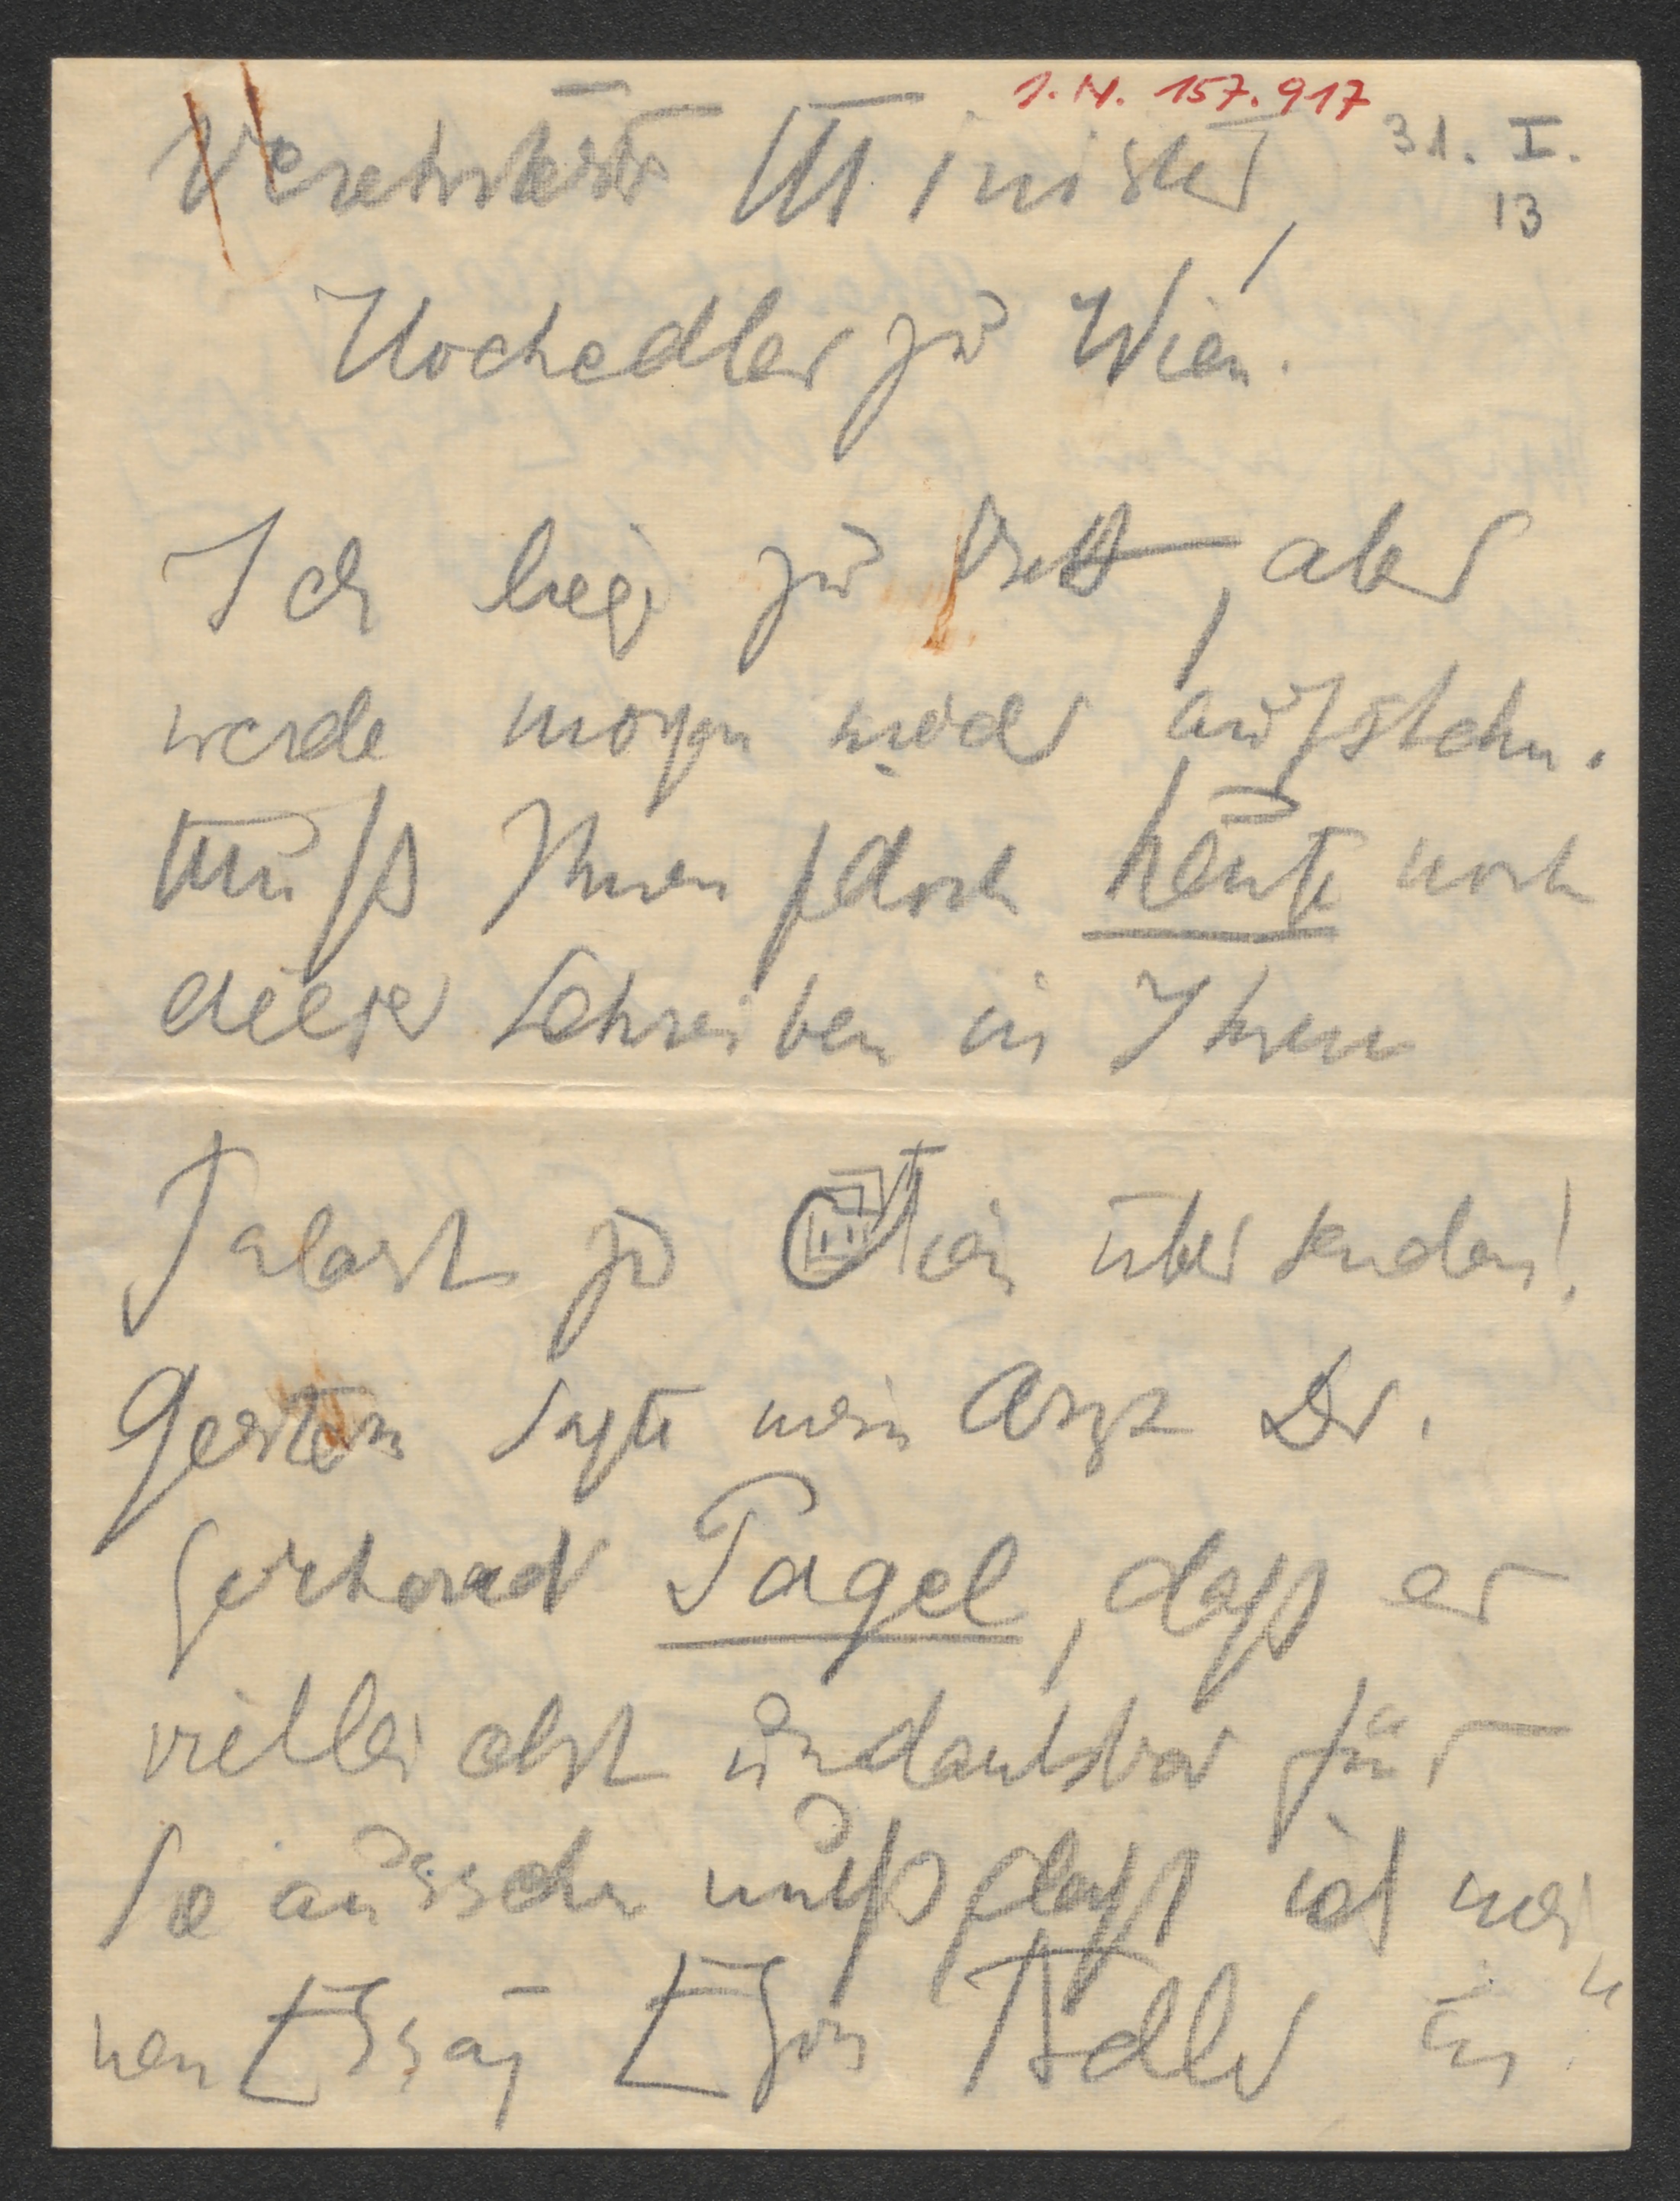 I.N. 157.917
31. I.
13
Verehrtester Minister,
Hochedler zu Wien.
Ich liege zu Bett, aber
werde morgen wieder aufstehn.
Muß Ihnen jedoch heute noch
dieses Schreiben in Ihren
Palast zu Wien übersenden!
Gestern sagte mein Arzt Dr.
Gerhard Pagel, daß er
vielleicht undankbar für
Sie aussehn muß, daß ich mei
nen Essay Egon Adler in